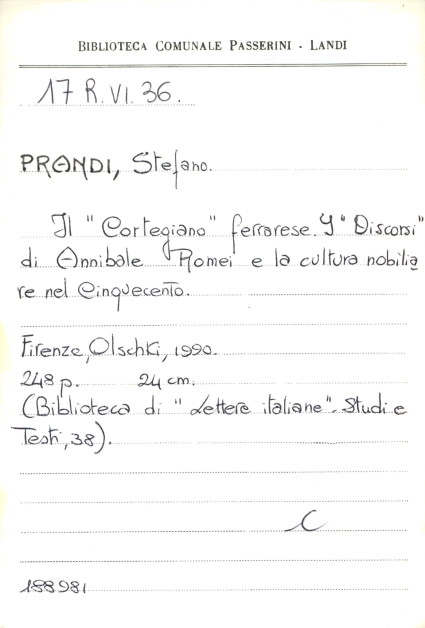 BIBLIOTECA COMUNALE PASSERINI - LANDI
17 R.VI.36.
PRANDI, Stefano.
Il "Cortegiano" ferrarese. I "Discorsi"
di Annibale Romei e la cultura nobilia
re nel Cinquecento.
Firenze, Olschki, 1990.
248 p. 24 cm.
(Biblioteca di "Lettere italiane". Studi e
Testi, 38).
C
188981